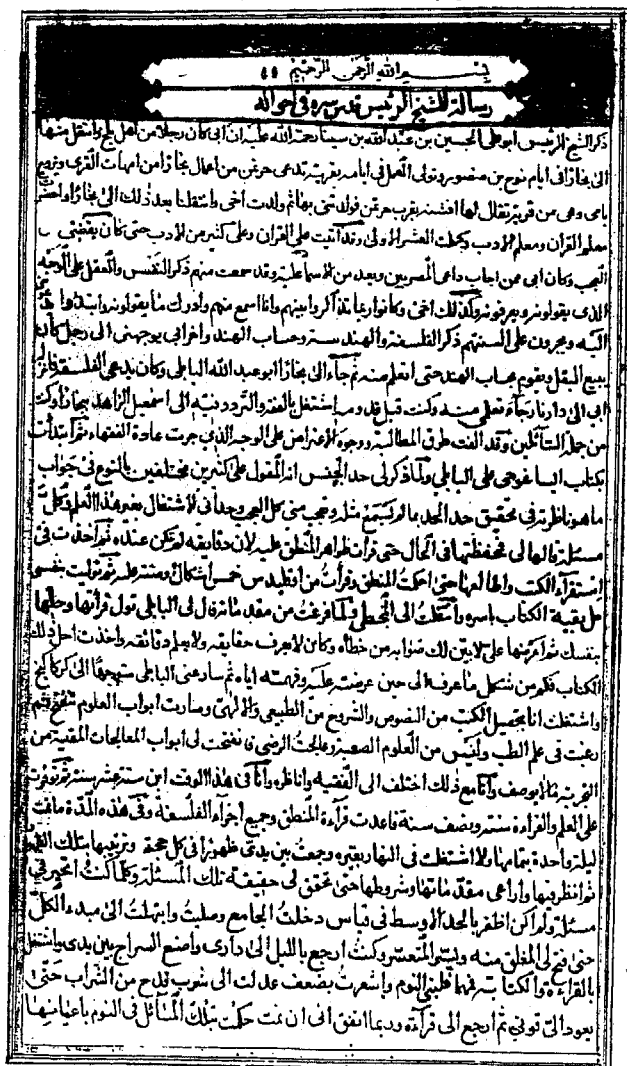 بسم الله الرحمن الرحيم
رسالة للشيخ الرئيس قدس سره في احواله
ذكر الشيخ الرئيس ابو على الحسين بن عبد الله بن سينا رحمة الله عليه ان ابى كان رجلا من اهل بلخ وانتقل منها
الى بخارا فى ايام نوح بن منصور وتولى العمل فى ايامه بقرية تدعى خرمثن من اعمال بخارا من امهات القرى وتزوج
بامى وهى من قرية يقال لها افشنة بقرب خرمثن فولدتنى بها ثم ولدت اخى وانتقلنا بعد ذلك الى بخارا واحضر
معلم القران ومعلم الادب وكملت العشر الاولى وقد اتيت على القران وعلى كثير من الادب حتى كان يقضى
العجب وكان ابى ممن اجاب داعى المصريين ويعد من الاسماعلية وقد سمعت منهم ذكر النفس والعقل على الوجه
الذى يقولونه ويعرفونه وكذلك اخى وكانوا ربما تذاكروا بينهم وانا اسمع منهم وادرك ما يقولونه وابتدوا
اليه ويجرون على السنتهم ذكر الفلسفة والهندسة وحساب الهند واخذ ابى يوجهنى الى رجل كان
يبيع البقل ويقوم بحساب الهند حتى اتعلم منه ثم جاء الى بخارا ابو عبد الله الناتلى وكان يدعى الفلسفة فانزله
ابى الى دارنا رجاء تعلمى منه وكنت قبل قدومه اشتغل بالفقه والتردد فيه الى اسمعيل الزاهد ببخارا وكنت
من جملة السائلين وقد الفت طرق المطالبة ووجوه الاعتراض على الوجه الذى جرت عادة الفقهاء ثم ابتدأت
بكتاب ايساغوجى على الناتلى ولما ذكر لى حد الجنس انه المقول على كثيرين مختلفين بالنوع فى جواب
ما هو ناظرته فى تحقيق حد الحد بما لم يسمع مثله وتعجب منى كل العجب وحذر ابى فى الاشتغال بغير هذا العلم وكل
مسئلة قالها لى تحفظتها فى الحال حتى قرأت ظواهر المنطق عليه لان دقايقه لم تكن عنده ثم اخذت فى
استقراء الكتب واطالعها حتى احكمت المنطق وقرأت من اقليدس خمس اشكال وستة عليه ثم توليت بنفسى
حل بقية الكتاب باسره وانتقلت الى المجسطى فلما فرغت من مقدماته قال لى الناتلى تول قرائتها وحلها
بنفسك ثم اعرضها على لابين لك صوابه من خطأه وكان لا يعرف حقايقه ولا يعلم دقائقه واخذت احل ذلك
الكتاب فكم من شكل ما عرفه الى حين عرضته عليه وفهمته اياه ثم سار عنى الناتلى متوجها الى كركانج
واشتغلت انا بتحصيل الكتب من النصوص والشروح من الطبيعى والالهى وصارت ابواب العلوم تنفتح ثم
رغبت فى علم الطب وليس من العلوم الصعبة وعالجت المرضى فانفتحت لى ابواب المعالجات المقتبسة من
التجربة ما لا يوصف وانا مع ذلك اختلف الى الفقيه واناظره وانا فى هذا الوقت ابن ستة عشر سنة ثم توفرت
على العلم والقراءة سنة ونصف سنة فاعدت قراءة المنطق وجميع اجزاء الفلسفة وفى هذه المدة ما نمت
ليلة واحدة بتمامها ولا اشتغلت فى النهار بغيره وجمعت بين يدى ظهورا فى كل حجة وترتيبها تلك
ثم انظر فيها واراعى مقدماتها وشروطها حتى تحقق لى حقيقة تلك المسئلة وكلما كنت اتحير فى
مسئلة ولم اكن اظفر بالحد الاوسط فى قياس دخلت الجامع وصليت وابتهلت الى مبدء الكل
حتى فتح لى المغلق منه ويسر المتعسر وكنت ارجع بالليل الى دارى واضع السراج بين يدى واشتغل
بالقراءة والكتابة فمهما غلبنى النوم واشعرت بضعف عدلت الى شرب قدح من الشراب حتى
يعود الى قوتى ثم ارجع الى قراءة وربما اتفق انى ان نمت حكمت بتلك المسائل فى النوم باعيانها